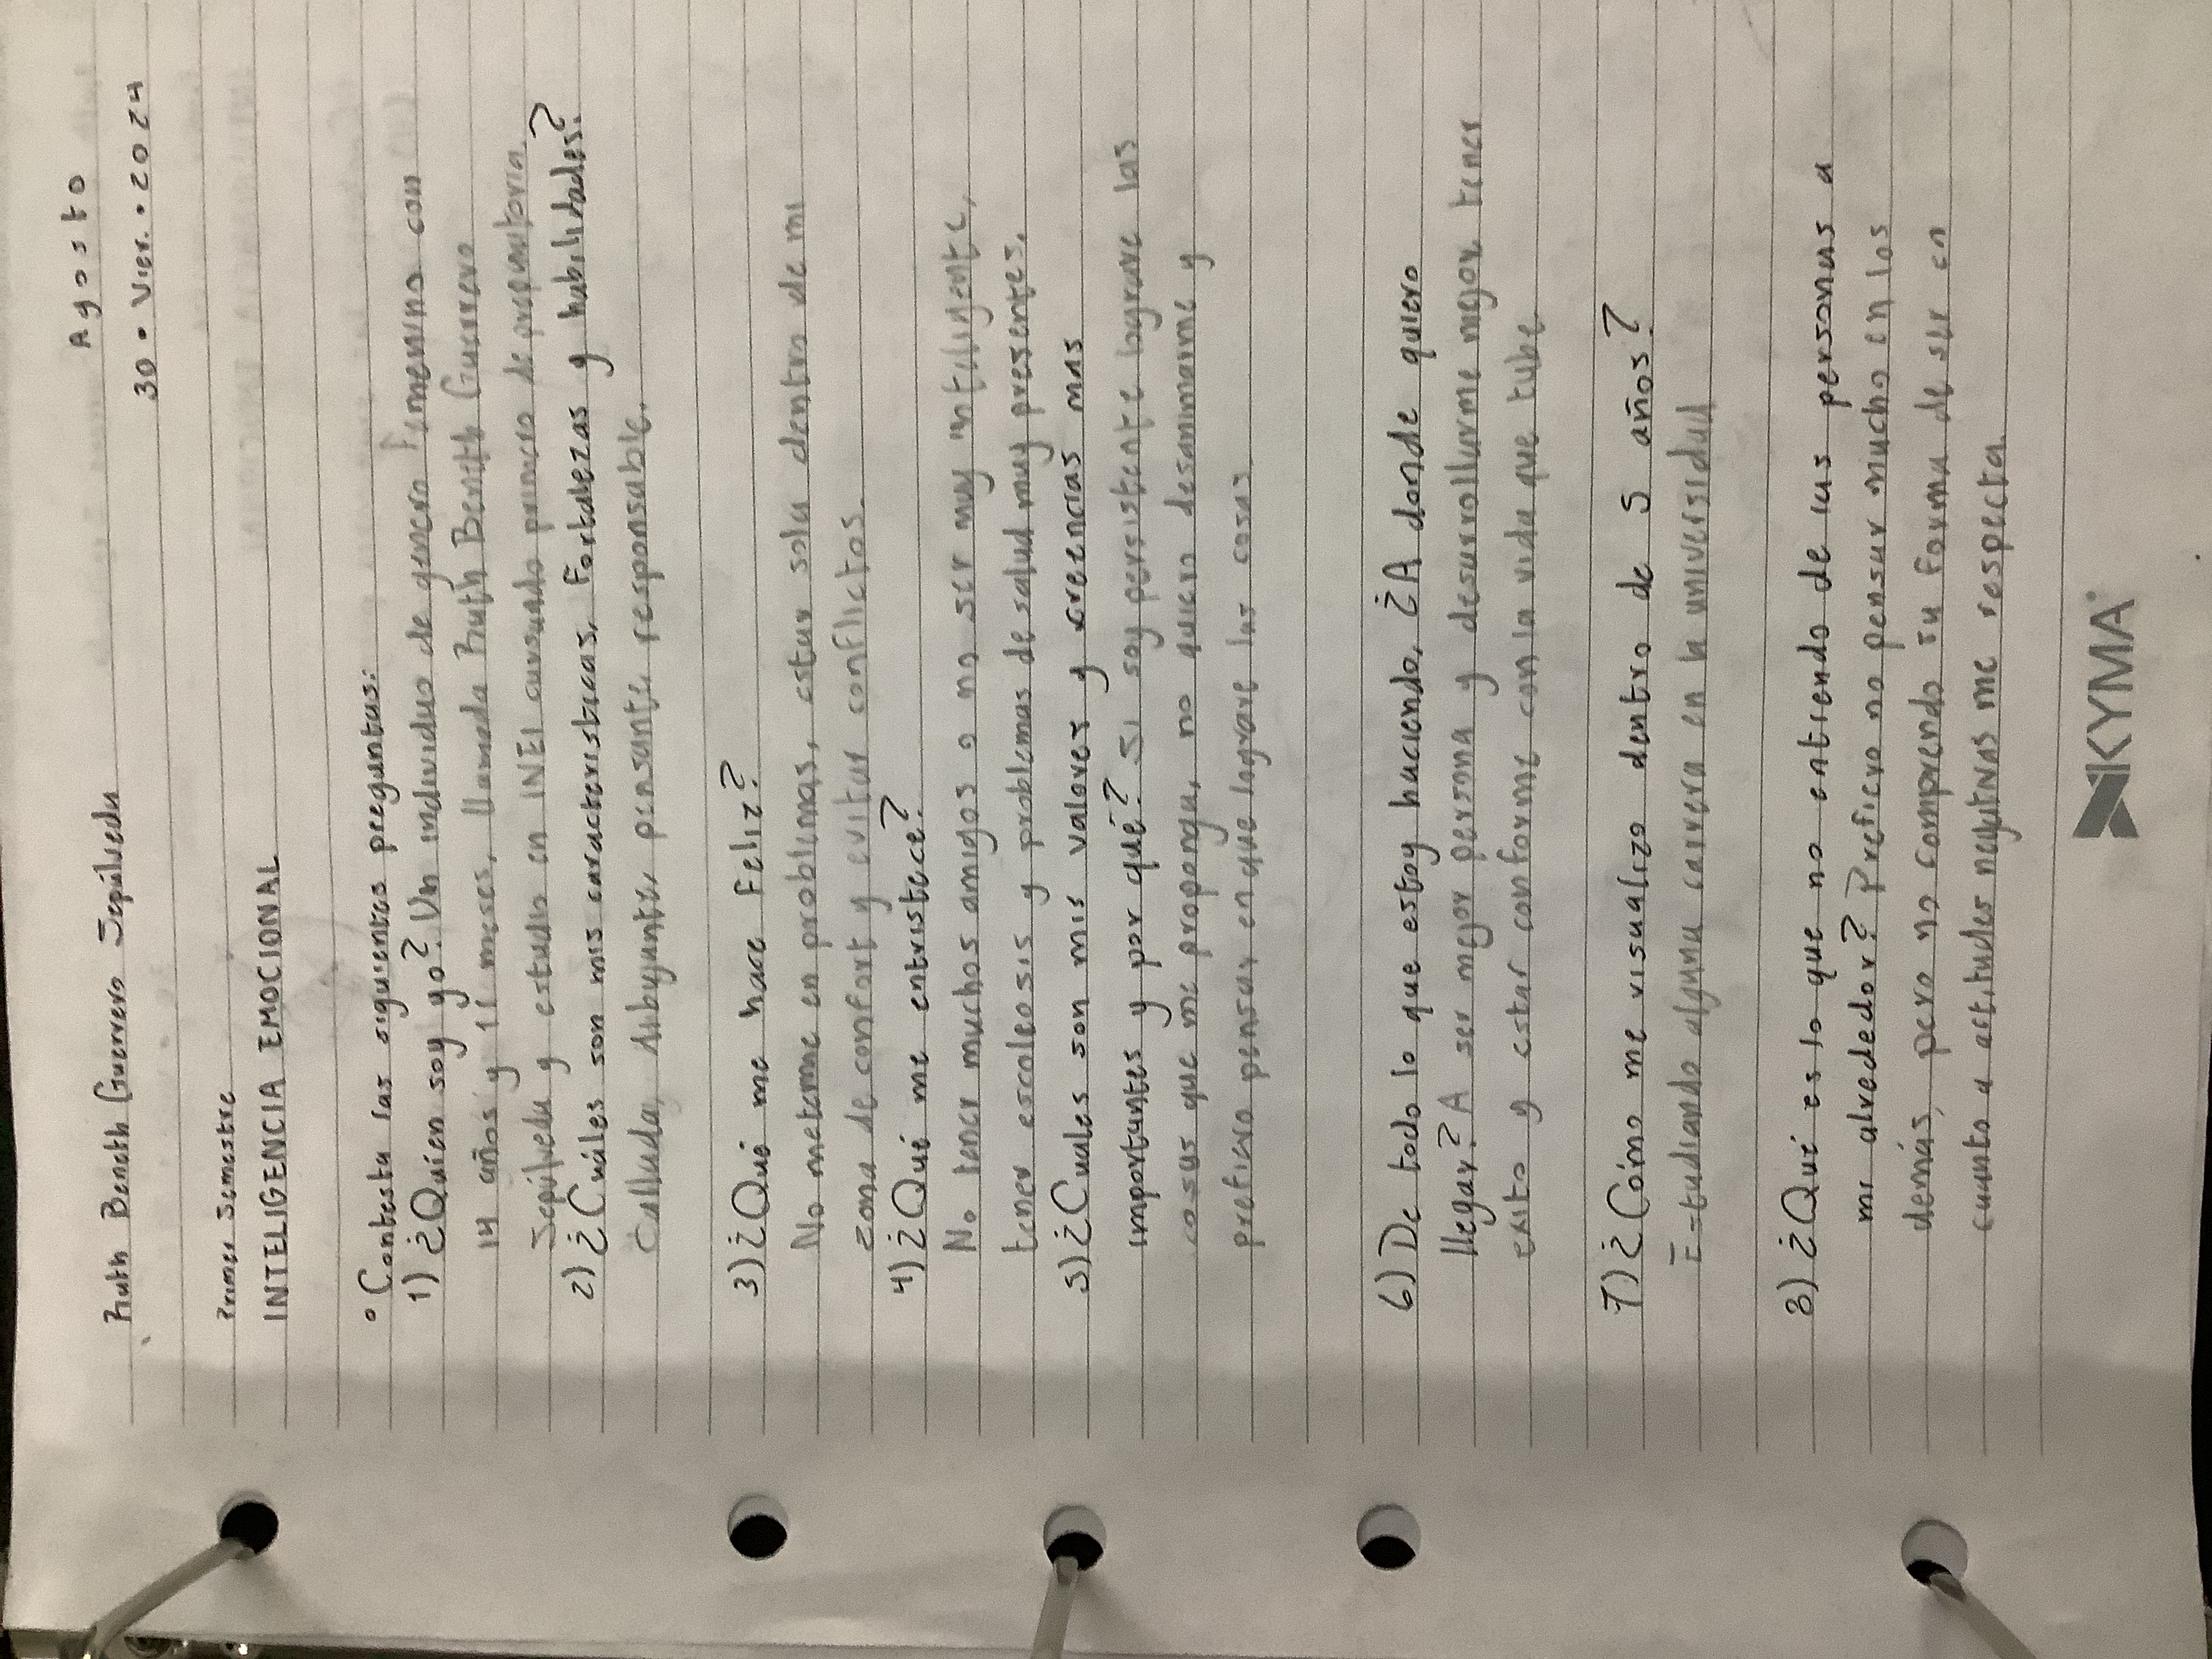 Agosto
Ruth Beneth Guerrero Sepúlveda
30 • Vier. • 2024
Primer Semestre
INTELIGENCIA EMOCIONAL
• Contesta las siguientes preguntas:
1) ¿Quién soy yo? Un individuo de genero Femenino con
14 años y 11 meses, llamada Ruth Beneth Guerrero
Sepúlveda y estudio en INEI cursando primero de preparatoria.
2) ¿Cuáles son mis caracteristicas, Fortalezas y habilidades?
Callada, subyante, pensante, responsable.
3) ¿Qué me hace Feliz?
No meterme en problemas, estar sola dentro de mi
zona de confort y evitar conflictos.
4) ¿Qué me entristece?
No tener muchos amigos o no ser muy inteligente,
tener escoleosis y problemas de salud muy presentes.
5) ¿Cuales son mis valores y creencias mas
importantes y por qué? Si soy persistente lograre las
cosas que me proponga, no quiero desanimarme y
prefiero pensar en que lograre las cosas
6) De todo lo que estoy haciendo, ¿A donde quiero
llegar? A ser mejor persona y desarrollarme mejor tener
exito y estar conforme con la vida que tube
7) ¿Cómo me visualizo dentro de 5 años?
Estudiando alguna carrera en la universidad
8) ¿Qué es lo que no entiendo de las personas a
mi alrededor? Prefiero no pensar mucho en los
demás, pero no comprendo su forma de ser en
cuanto a actitudes negativas me respecta
KYMA